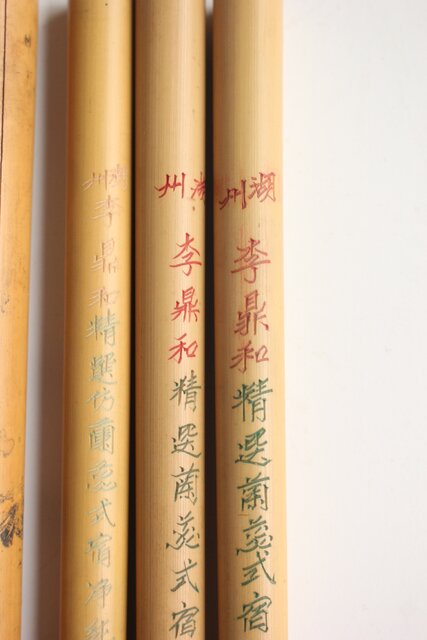 湖州
李鼎和精选蘭蕊式宿
湖州
李鼎和精选蘭蕊式宿
湖州
李鼎和精選仿蘭蕊式宿净